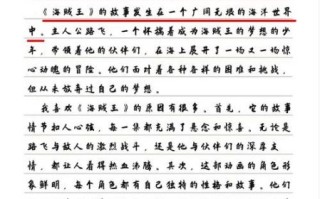 《海贼王》的故事发生在一个广阔无垠的海洋世界
中。主人公路飞,一个怀揣着成为海贼王的梦想的少
年,带领着他的伙伴们,在海上展开了一场又一场惊
心动魄的冒险。他们面对着各种各样的困难和挑战,
但从未放弃过自己的梦想。
我喜欢《海贼王》的原因有很多。首先,它的故事
情节扣人心弦,每一集都充满了悬念和惊喜。无论是
路飞与敌人的激烈战斗,还是他与伙伴们的深厚友
情,都让人看得热血沸腾。其次,这部动画的角色形
象鲜明,每个角色都有自己独特的性格和故事。他们